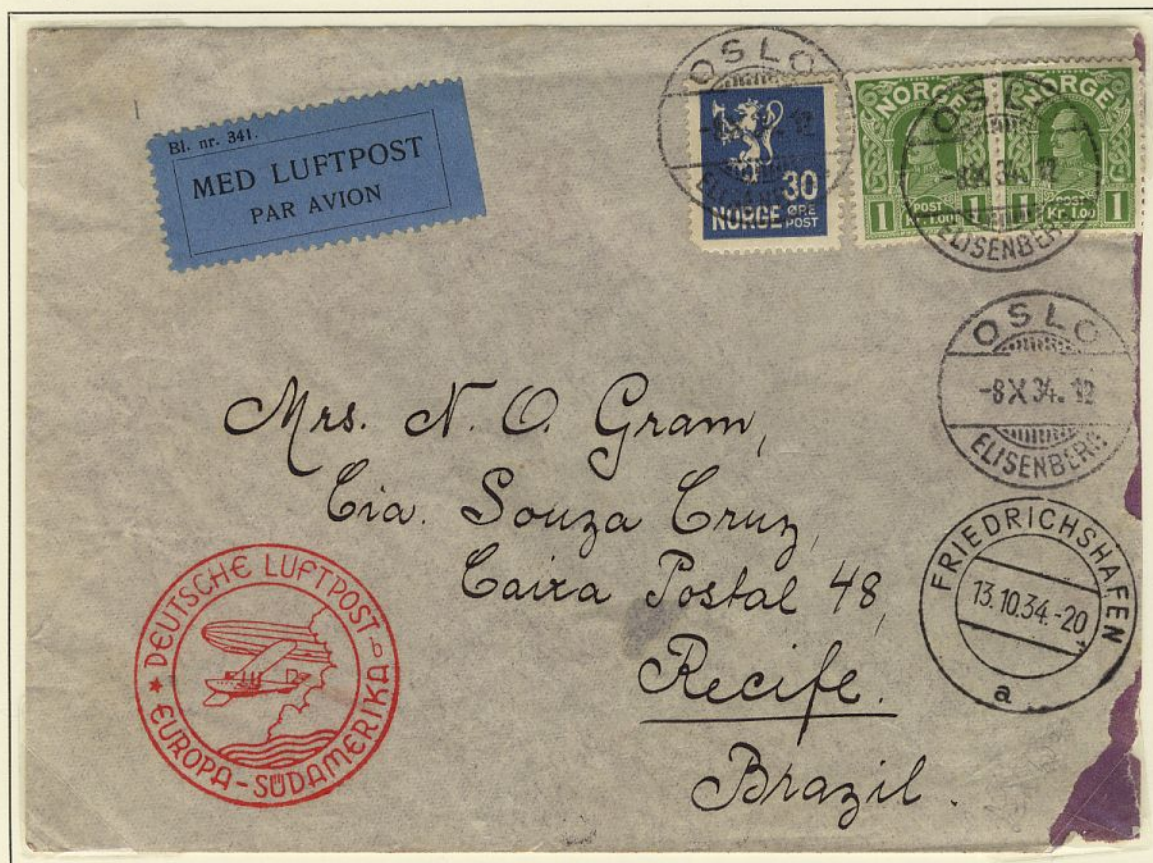 Bl. nr. 341.
MED LUFTPOST
PAR AVION
OSLO
ELISENBERG
30
NORGE ØRE
POST
NORGE
1 POST 1
Kr. 1.00
NORGE
1 POST 1
Kr. 1.00
OSLO
-8X 34. 12
ELISENBERG
OSLO
-8X34. 12
ELISENBERG
Mrs. N. O. Gram,
Cia. Souza Cruz,
Caixa Postal 48,
Recife.
Brazil.
FRIEDRICHSHAFEN
13.10.34.-20
a
★ DEUTSCHE LUFTPOST
b
EUROPA-SÜDAMERIKA